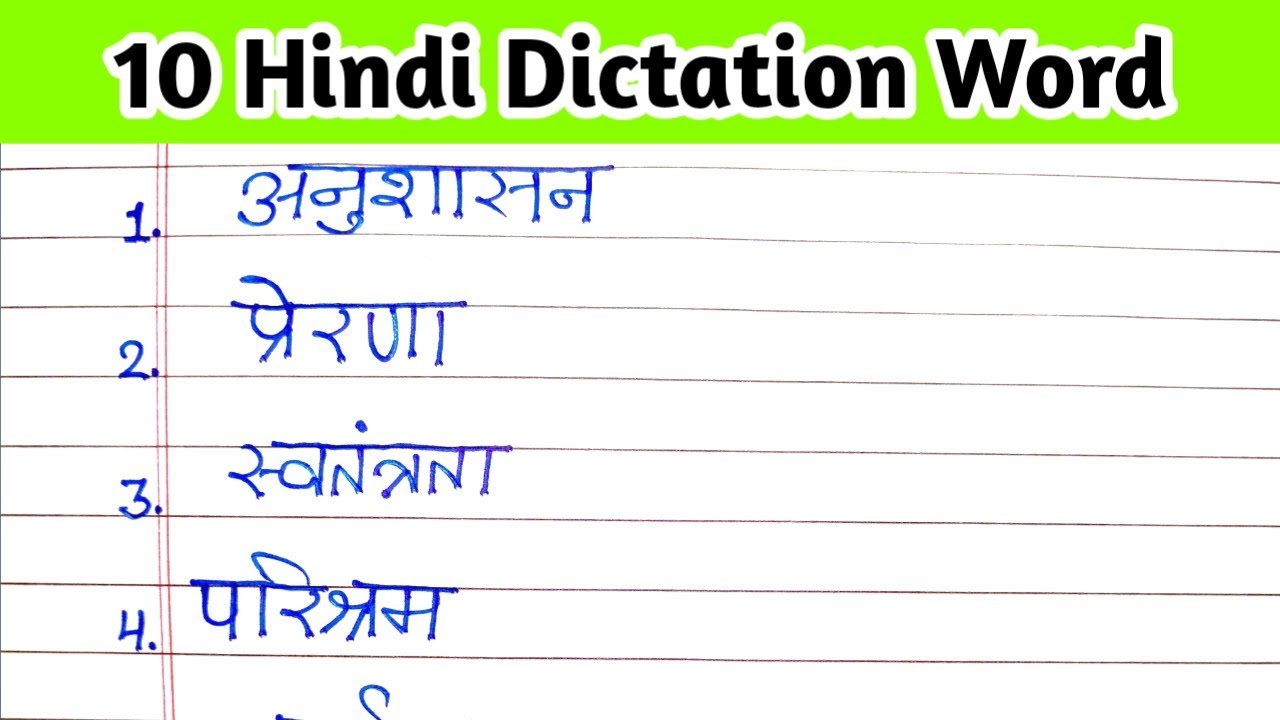 10 Hindi Dictation Word
1. अनुशासन
2. प्रेरणा
3. स्वतंत्रता
4. परिश्रम